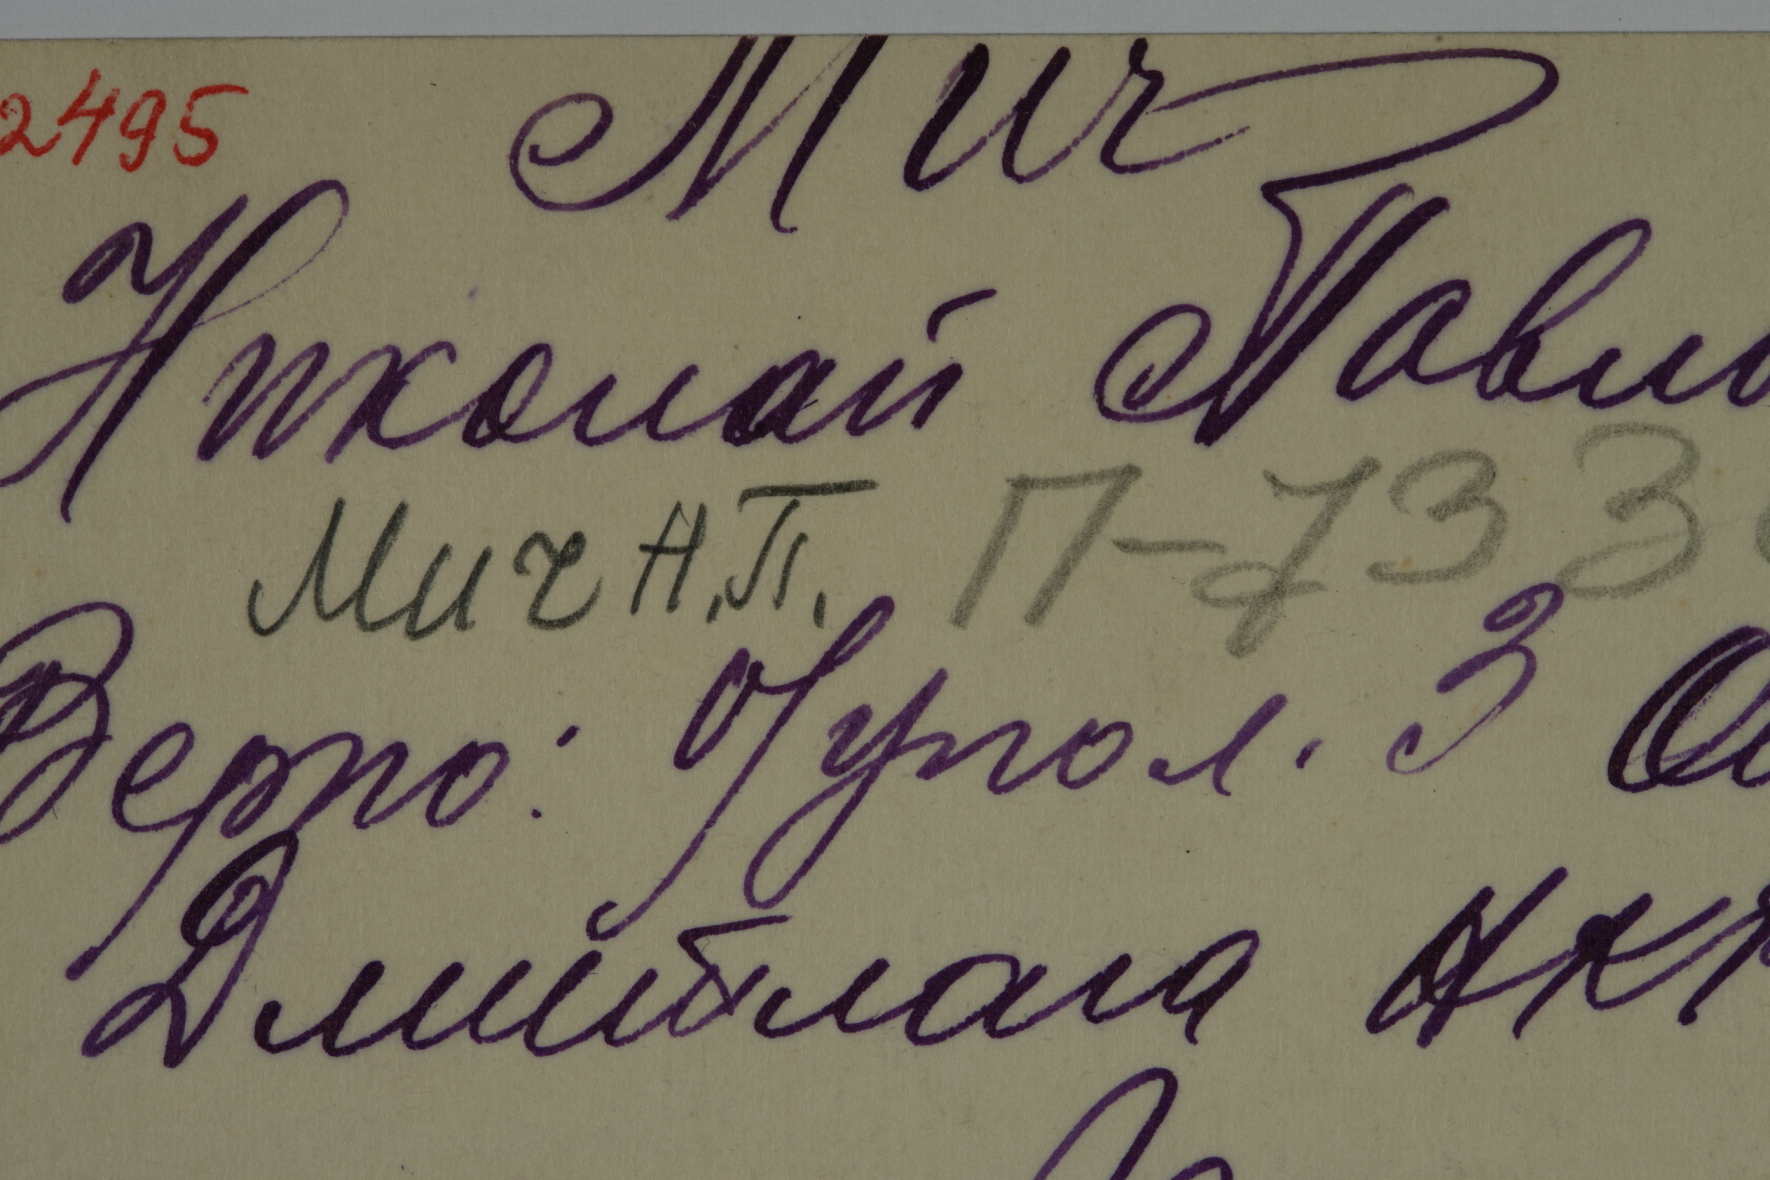 2495
Мич
Николай Павло
Мич Н.П. П-733
Верно: Оупол. 3 О
Дмитлага НКВ